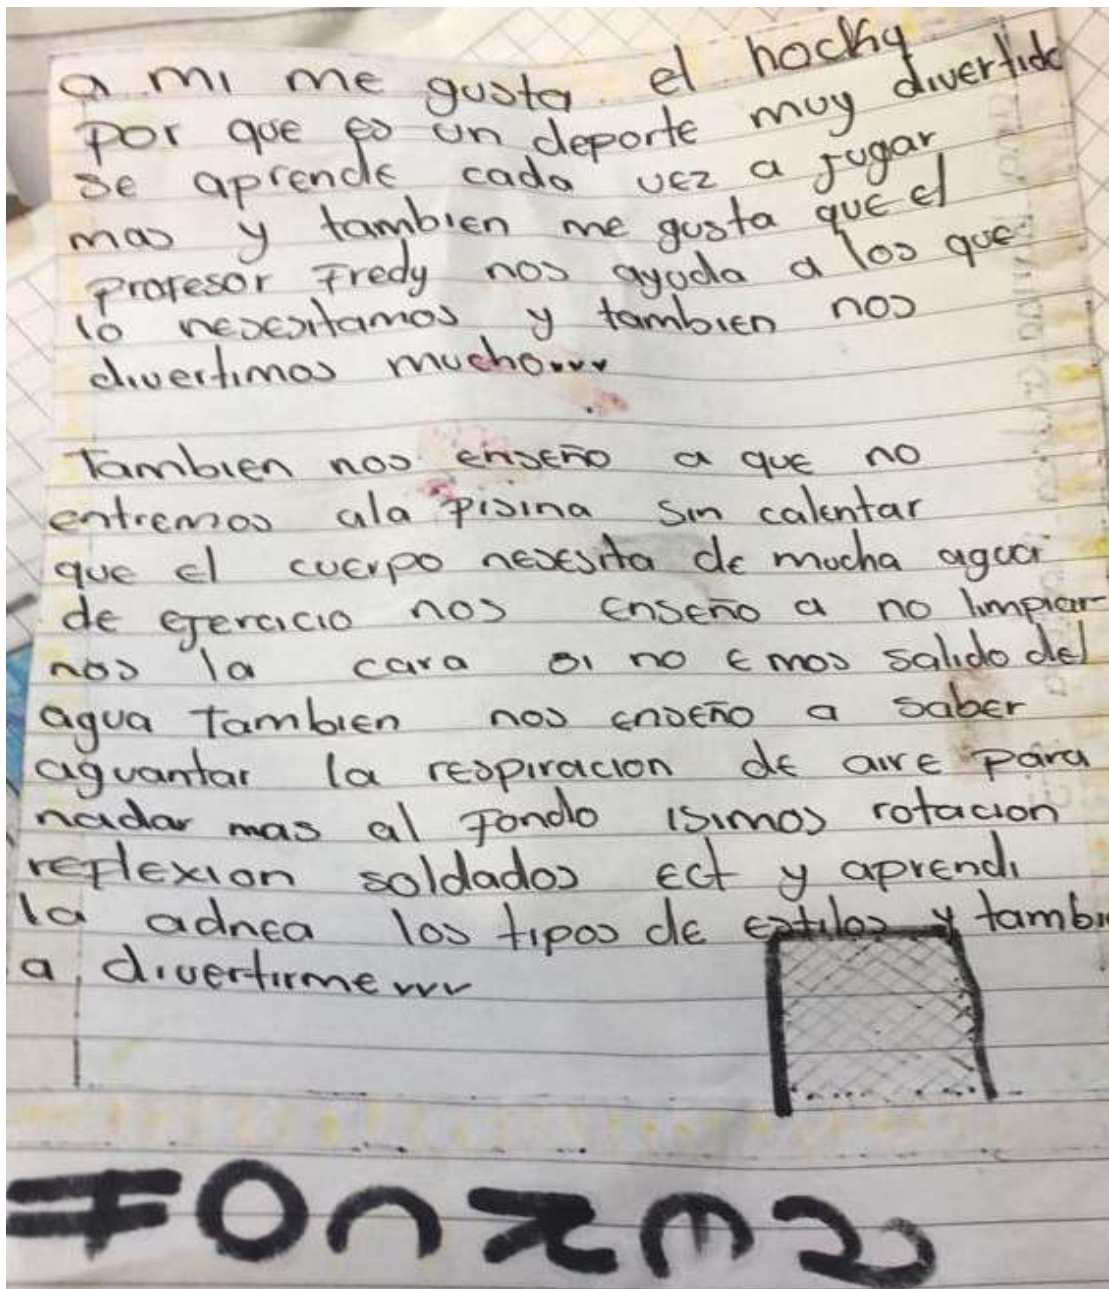 a mi me gusta el hocky
por que es un deporte muy divertido
se aprende cada vez a jugar
mas y tambien me gusta que el
profesor Fredy nos ayuda a los que
lo nesesitamos y tambien nos
divertimos mucho...
Tambien nos enseño a que no
entremos ala pisina sin calentar
que el cuerpo nesesita de mucha agua
de ejercicio nos enseño a no limpiar
nos la cara si no emos salido del
agua Tambien nos enseño a saber
aguantar la respiracion de aire para
nadar mas al fondo isimos rotacion
reflexion soldados ect y aprendi
la adnea los tipos de estilos y tambi
a divertirme